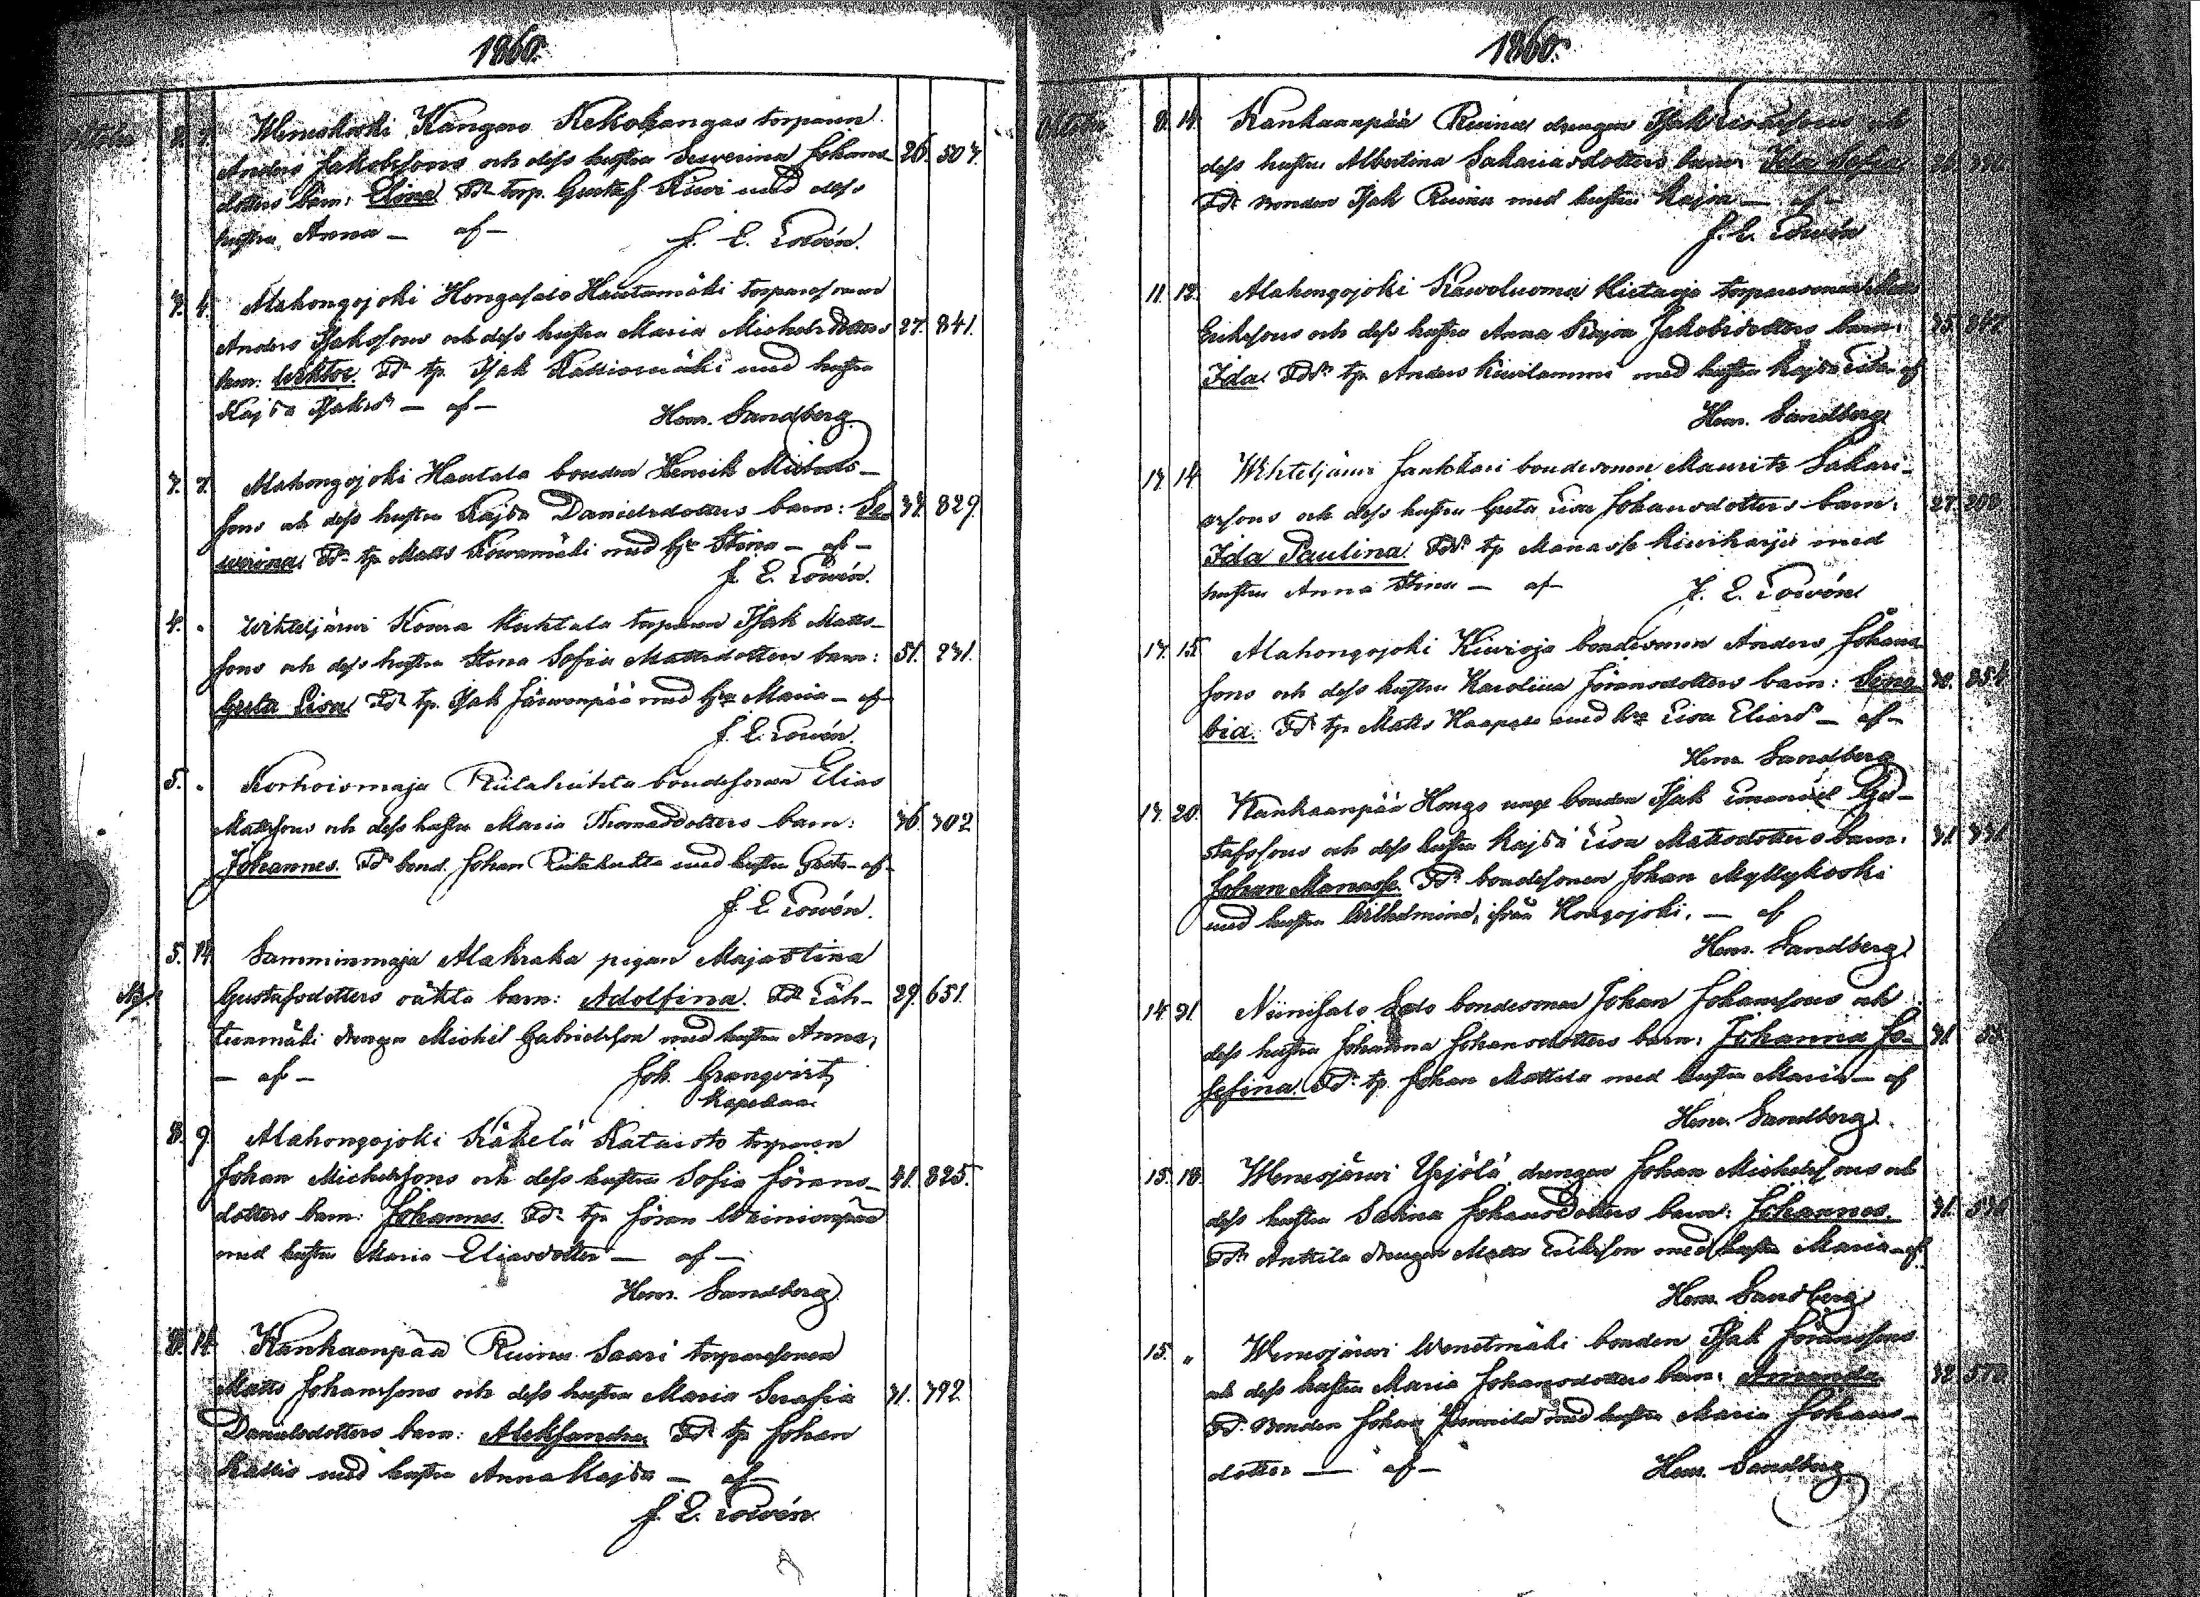 1860.
Oktober 2. 7. Wenesk​oski Kangas Kekokangas torparen
Anders Jakobssons och dess hustru Severina Johans- 26. 507.
dotters barn: Elina. Fdr torp. Gustaf Kiwi med dess
hustru Anna — af — F. E. Lowén.
7. 4. Alahongojoki Hongasalo Hautamäki torparesonen
Anders Isakssons och dess hustru Maria Michelsdotters 27. 841.
barn: Wiktor. Fdr tp. Isak Kalliomäki med hustru
Kajsa Isaksdr — af — Henr. Sandberg.
7. 7. Alahongojoki Hautala bonden Henrik Michels-
sons och dess hustru Kajsa Danielsdotters barn: Se- 37. 829.
verina. Fdr tp. Matts Kowamäki med h:u Stina — af —
F. E. Lowén.
4. " Wihteljärwi Koura Kuhtala torparen Isak Matts-
sons och dess hustru Stina Sofia Mattsdotters barn: 51. 231.
Greta Lisa. Fdr tp. Isak Järwenpää med h:u Maria — af —
F. E. Lowén.
5. " Korhoismaja Riitahuhta bondesonen Elias
Mattssons och dess hustru Maria Thomasdotters barn: 36. 302
Johannes. Fdr bond. Johan Riitahuhta med hustru Greta — af —
F. E. Lowén.
5. 14. Samminmaja Alakraka pigan Maja Stina
Gustafsdotters oäkta barn: Adolfina. Fdr Läh- 29. 651.
teenmäki drengen Michel Gabrielsson med hustru Anna,
— af — Joh. Granqvist,
Kapellan.
8. 9. Alahongojoki Käkelä Kataisto torparen
Johan Michelssons och dess hustru Sofia Jörans- 41. 825.
dotters barn: Johannes. Fdr tp. Jöran Wäinionpää
med hustru Maria Eliasdotter — af —
Henr. Sandberg.
8. 14. Kankaanpää Ruina Saari torparesonen
Matts Johanssons och dess hustru Maria Serafia 31. 392
Danielsdotters barn: Aleksandra. Fdr tp. Johan
Kallio med hustru Anna Kajsa — af —
F. E. Lowén.
1860.
Oktober 8. 14. Kankaanpää Ruina drengen Isak och
dess hustru Albertina Sakariasdotters barn: Ida Sofia.
Fdr bonden Isak Ruina med hustru Kajsa — af —
F. E. Lowén
11. 12. Alahongojoki Rawoluoma Hietaoja torparesonen
Erikssons och dess hustru Anna Kajsa Jakobsdotters barn:
Ida. Fdr tp. Anders Kiwilammi med hustru Kajsa Lisa — af
Henr. Sandberg.
13. 14. Wihteljärwi Jankkari bondesonen Maurits Sakari-
assons och dess hustru Greta Lisa Johansdotters barn: 27. 208
Ida Paulina. Fdr tp. Manasse Kiwiharju med
hustru Anna Stina — af — F. E. Lowén
13. 15. Alahongojoki Kiwioja bondesonen Anders Johans-
sons och dess hustru Karolina Jöransdotters barn: Sera- 30. 854.
bia. Fdr tp. Matts Haapala med h:u Lisa Eliasdr — af —
Henr. Sandberg
13. 20. Kankaanpää Hongo unge bonden Isak Emanuel Gus-
stafssons och dess hustru Kajsa Lisa Mattsdotters barn: 31. 331.
Johan Manasse. Fdr bondesonen Johan Myllykoski
med hustru Wilhelmina, ifrån Hongojoki, — af
Henr. Sandberg
14. 21. Niinisalo Salo bondesonen Johan Johanssons och
dess hustru Johanna Johansdotters barn: Johanna Jo- 31.
sefina. Fdr tp. Johan Mattila med hustru Maria — af
Henr. Sandberg.
15. 18. Wenesjärwi Yrjölä drengen Johan Michelssons och
dess hustru Salina Johansdotters barn: Johannes. 31.
Fdr Anttila drengen Matts Eriksson med hustru Maria — af
Henr. Sandberg
15. " Wenesjärwi Wenetmäki bonden Isak Joranssons
och dess hustru Maria Johansdotters barn: Amanda.
Fdr bonden Johan Junnila med hustru Maria Johans-
dotter — af — Henr. Sandberg